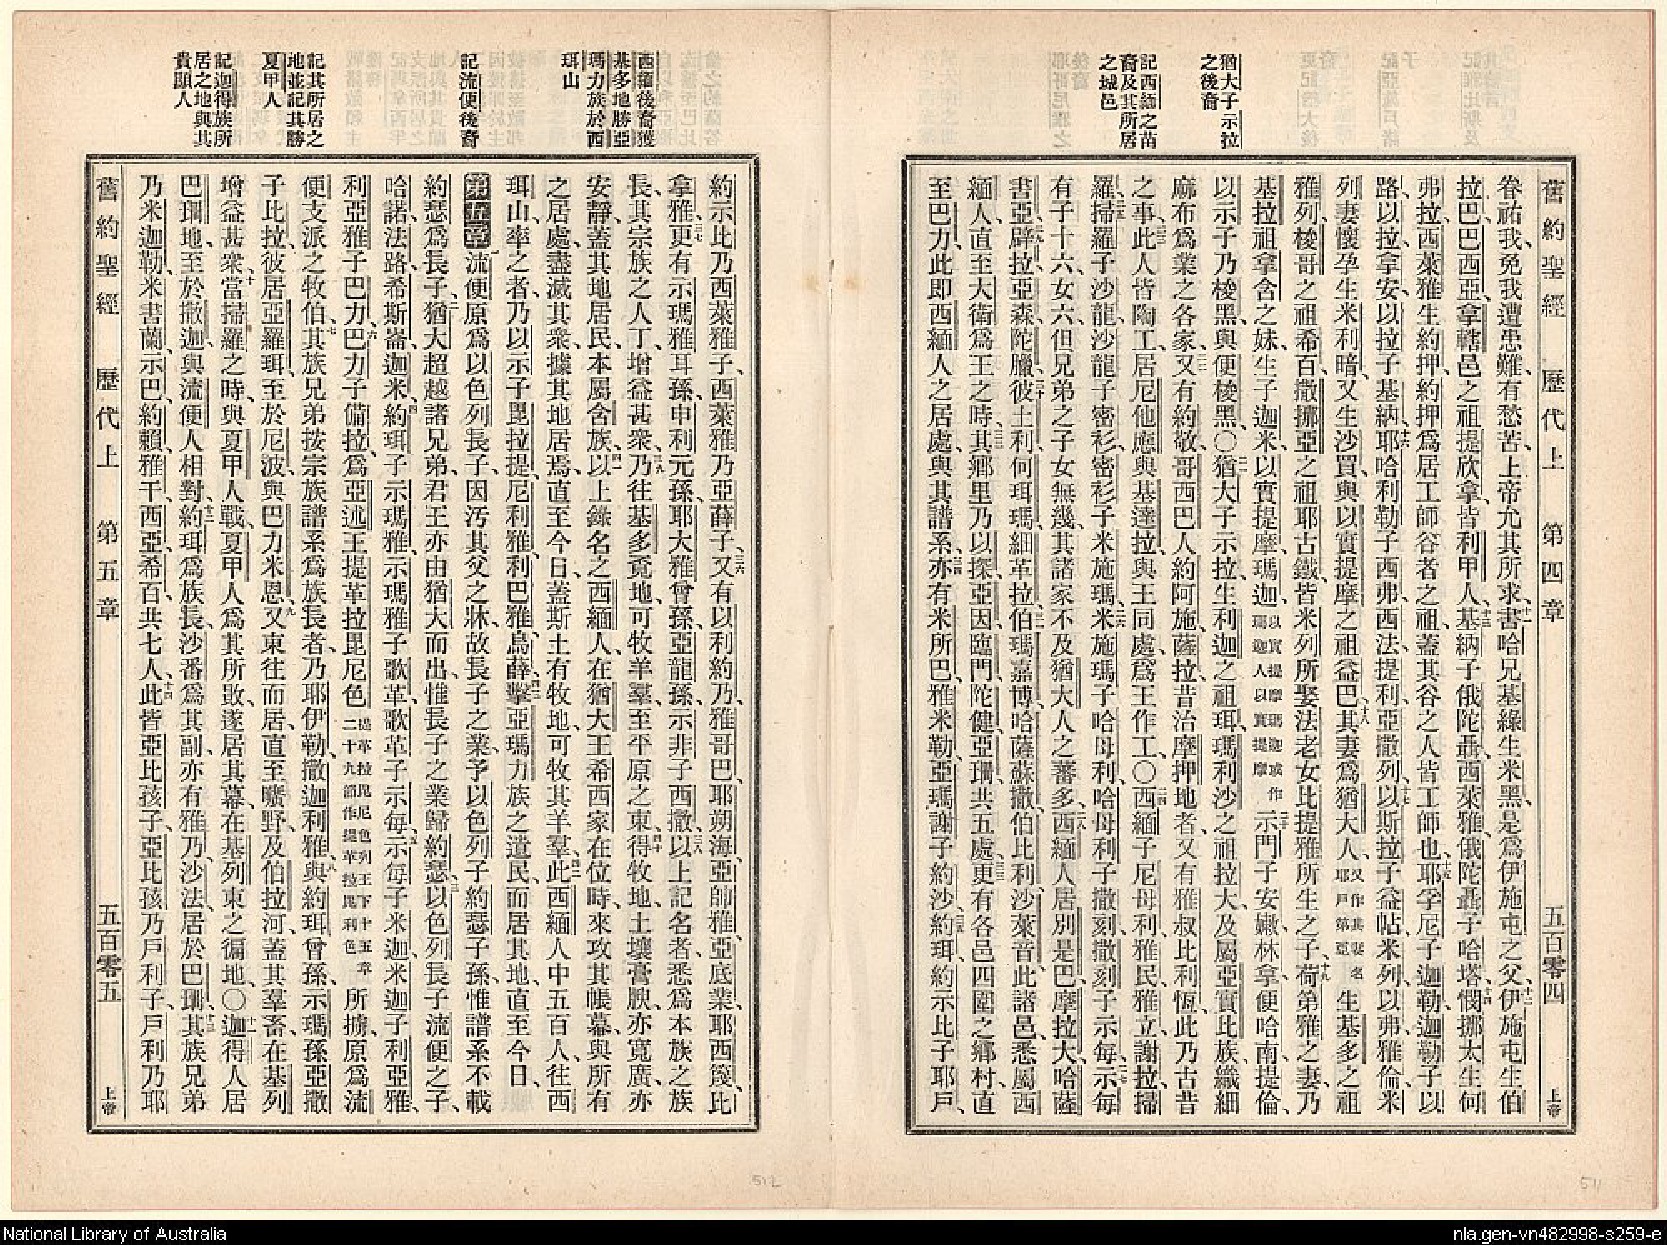 猶大子示拉
之後裔
記西緬之苗
裔及其所居
之城邑
舊約聖經 歷代上 第四章 五百零四 上帝
眷祐我免我遭患難有愁苦上帝允其所求書哈兄基綠生米黑是爲伊施屯之父伊施屯生伯
拉巴巴西亞拿轄邑之祖提欣拿皆利甲人基納子俄陀聶西萊雅俄陀聶子哈塔憫挪太生何
弗拉西萊雅生約押約押爲居工師谷者之祖蓋其谷之人皆工師也耶孚尼子迦勒迦勒子以
路以拉拿安以拉子基納耶哈利勒子西弗西法提利亞撒列以斯拉子益帖米列以弗雅倫米
列妻懷孕生米利暗又生沙買與以實提摩之祖益巴其妻爲猶大人又作其妻名耶戶第亞生基多之祖
雅列梭哥之祖希百撒挪亞之祖耶古鐵皆米列所娶法老女比提雅所生之子荷第雅之妻乃
基拉祖拿含之妹生子迦米以實提摩瑪迦以實提摩瑪迦或作瑪迦人以實提摩示門子安嫩林拿便哈南提倫
以示子乃梭黑與便梭黑○猶大子示拉生利迦之祖珥瑪利沙之祖拉大及屬亞實比族織細
麻布爲業之各家又有約敬哥西巴人約阿施薩拉昔治摩押地者又有雅叔比利恆此乃古昔
之事此人皆陶工居尼他應與基達拉與王同處爲王作工○西緬子尼母利雅民雅立謝拉掃
羅掃羅子沙龍沙龍子密衫密衫子米施瑪米施瑪子哈母利哈母利子撒刻撒刻子示每示每
有子十六女六但兄弟之子女無幾其諸家不及猶大人之蕃多西緬人居別是巴摩拉大哈薩
書亞辟拉亞森陀臘彼土利何珥瑪細革拉伯瑪嘉博哈薩蘇撒伯比利沙萊音此諸邑悉屬西
緬人直至大衛爲王之時其鄉里乃以探亞因臨門陀健亞珊共五處更有各邑四圍之鄉村直
至巴力此即西緬人之居處與其譜系亦有米所巴雅米勒亞瑪謝子約沙約珥約示比子耶戶
西緬後裔獲
基多地勝亞
瑪力族於西
珥山
記流便後裔
記其所居之
地並記其勝
夏甲人
記迦得族所
居之地與其
貴顯人
約示比乃西萊雅子西萊雅乃亞薛子又有以利約乃雅哥巴耶朔海亞師雅亞底業耶西篾比
拿雅更有示瑪雅耳孫申利元孫耶大雅曾孫亞龍孫示非子西撒以上記名者悉爲本族之族
長其宗族之人丁增益甚衆乃往基多覓地可牧羊羣至平原之東得牧地土壤膏腴亦寬廣亦
安靜蓋其地居民本屬含族以上錄名之西緬人在猶大王希西家在位時來攻其帳幕與所有
之居處盡滅其衆據其地居焉直至今日蓋斯土有牧地可牧其羊羣此西緬人中五百人往西
珥山率之者乃以示子毘拉提尼利雅利巴雅烏薛擊亞瑪力族之遺民而居其地直至今日
第五章 流便原爲以色列長子因汚其父之牀故長子之業予以色列子約瑟子孫惟譜系不載
約瑟爲長子猶大超越諸兄弟君王亦由猶大而出惟長子之業歸約瑟以色列長子流便之子
哈諾法路希斯崙迦米約珥子示瑪雅示瑪雅子歌革歌革子示每示每子米迦米迦子利亞雅
利亞雅子巴力巴力子備拉爲亞述王提革拉毘尼色提革拉毘尼色列王下十五章二十九節作提革拉毘利色所擄原爲流
便支派之牧伯其族兄弟按宗族譜系爲族長者乃耶伊勒撒迦利雅與約珥曾孫示瑪孫亞撒
子比拉彼居亞羅珥至於尼波與巴力米恩又東往而居直至曠野及伯拉河蓋其羣畜在基列
增益甚衆當掃羅之時與夏甲人戰夏甲人爲其所敗遂居其幕在基列東之徧地○迦得人居
巴珊地至於撒迦與流便人相對約珥爲族長沙番爲其副亦有雅乃沙法居於巴珊其族兄弟
乃米迦勒米書蘭示巴約賴雅干西亞希百共七人此皆亞比孩子亞比孩乃戶利子戶利乃耶
舊約聖經 歷代上 第五章 五百零五 上帝
512
511
National Library of Australia
nla.gen-vn482998-s259-e